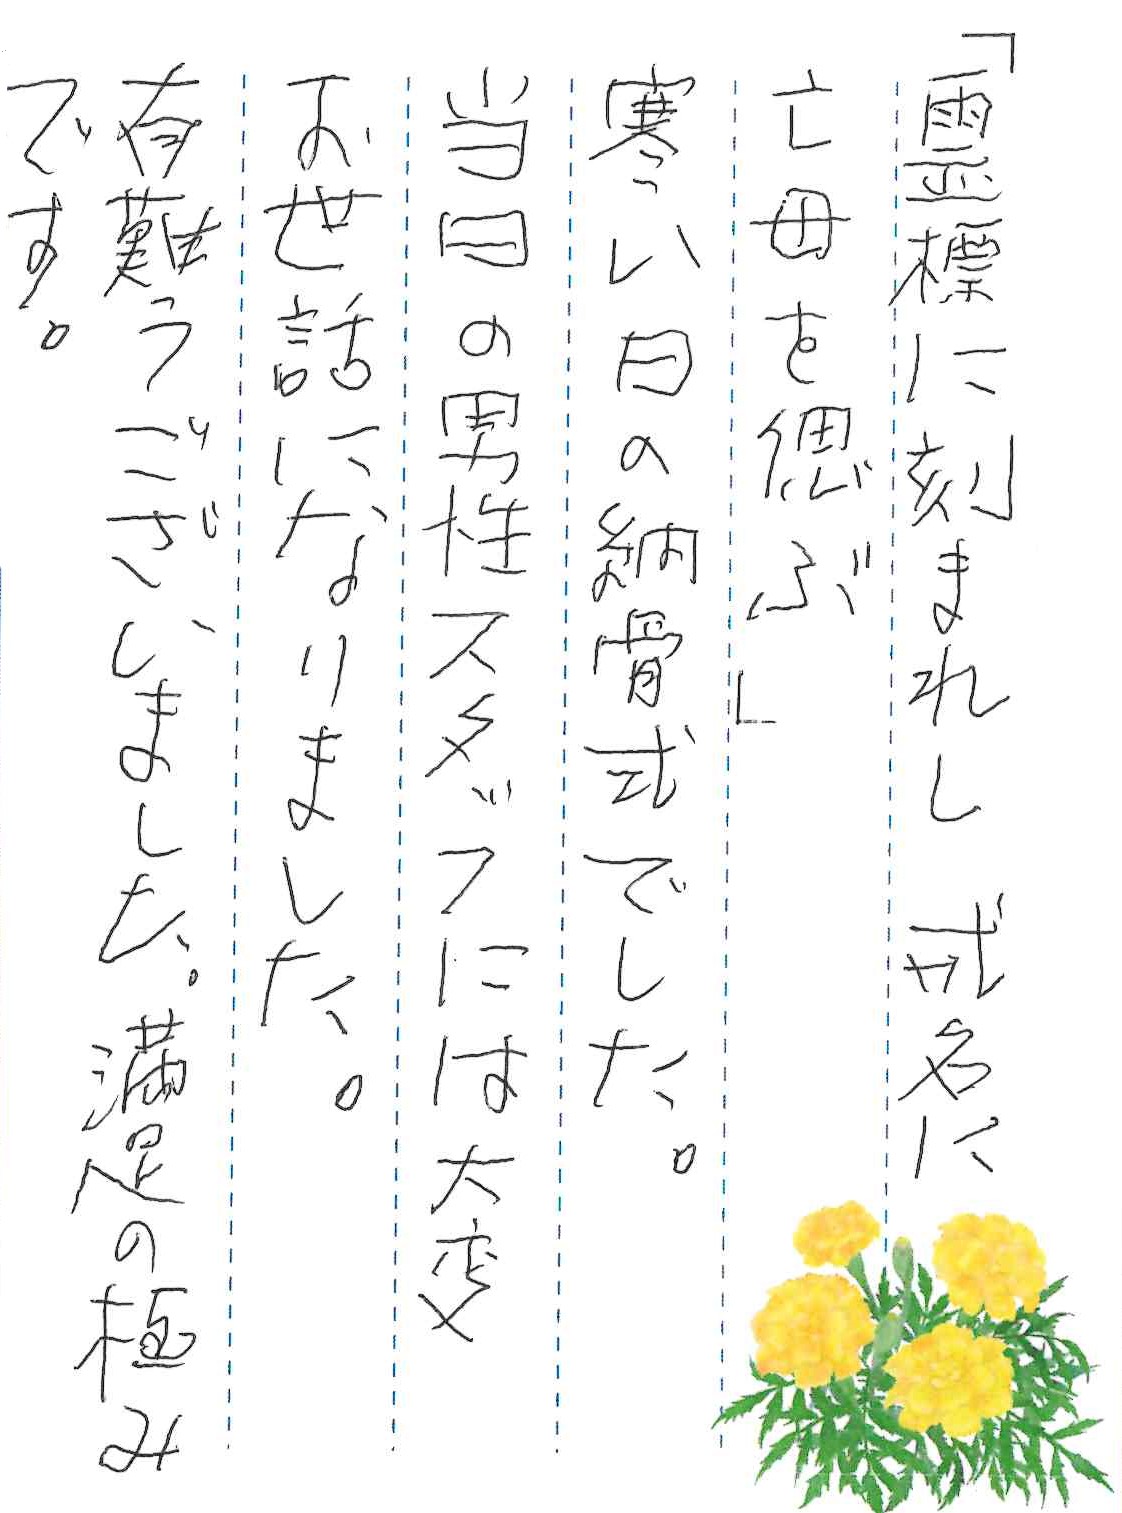 「霊標に刻まれし　戒名に
亡母を偲ぶ」
寒い日の納骨式でした。
当日の男性スタッフには大変
お世話になりました。
有難うございました。満足の極み
です。